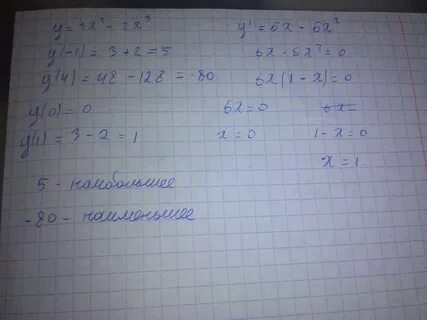 y = 3x² - 2x³
y(-1) = 3 + 2 = 5
y(4) = 48 - 128 = -80
y(0) = 0
y(1) = 3 - 2 = 1
5 - наибольшее
-80 - наименьшее
y' = 6x - 6x²
6x - 6x² = 0
6x(1 - x) = 0
6x = 0 6x =
x = 0 1 - x = 0
x = 1.